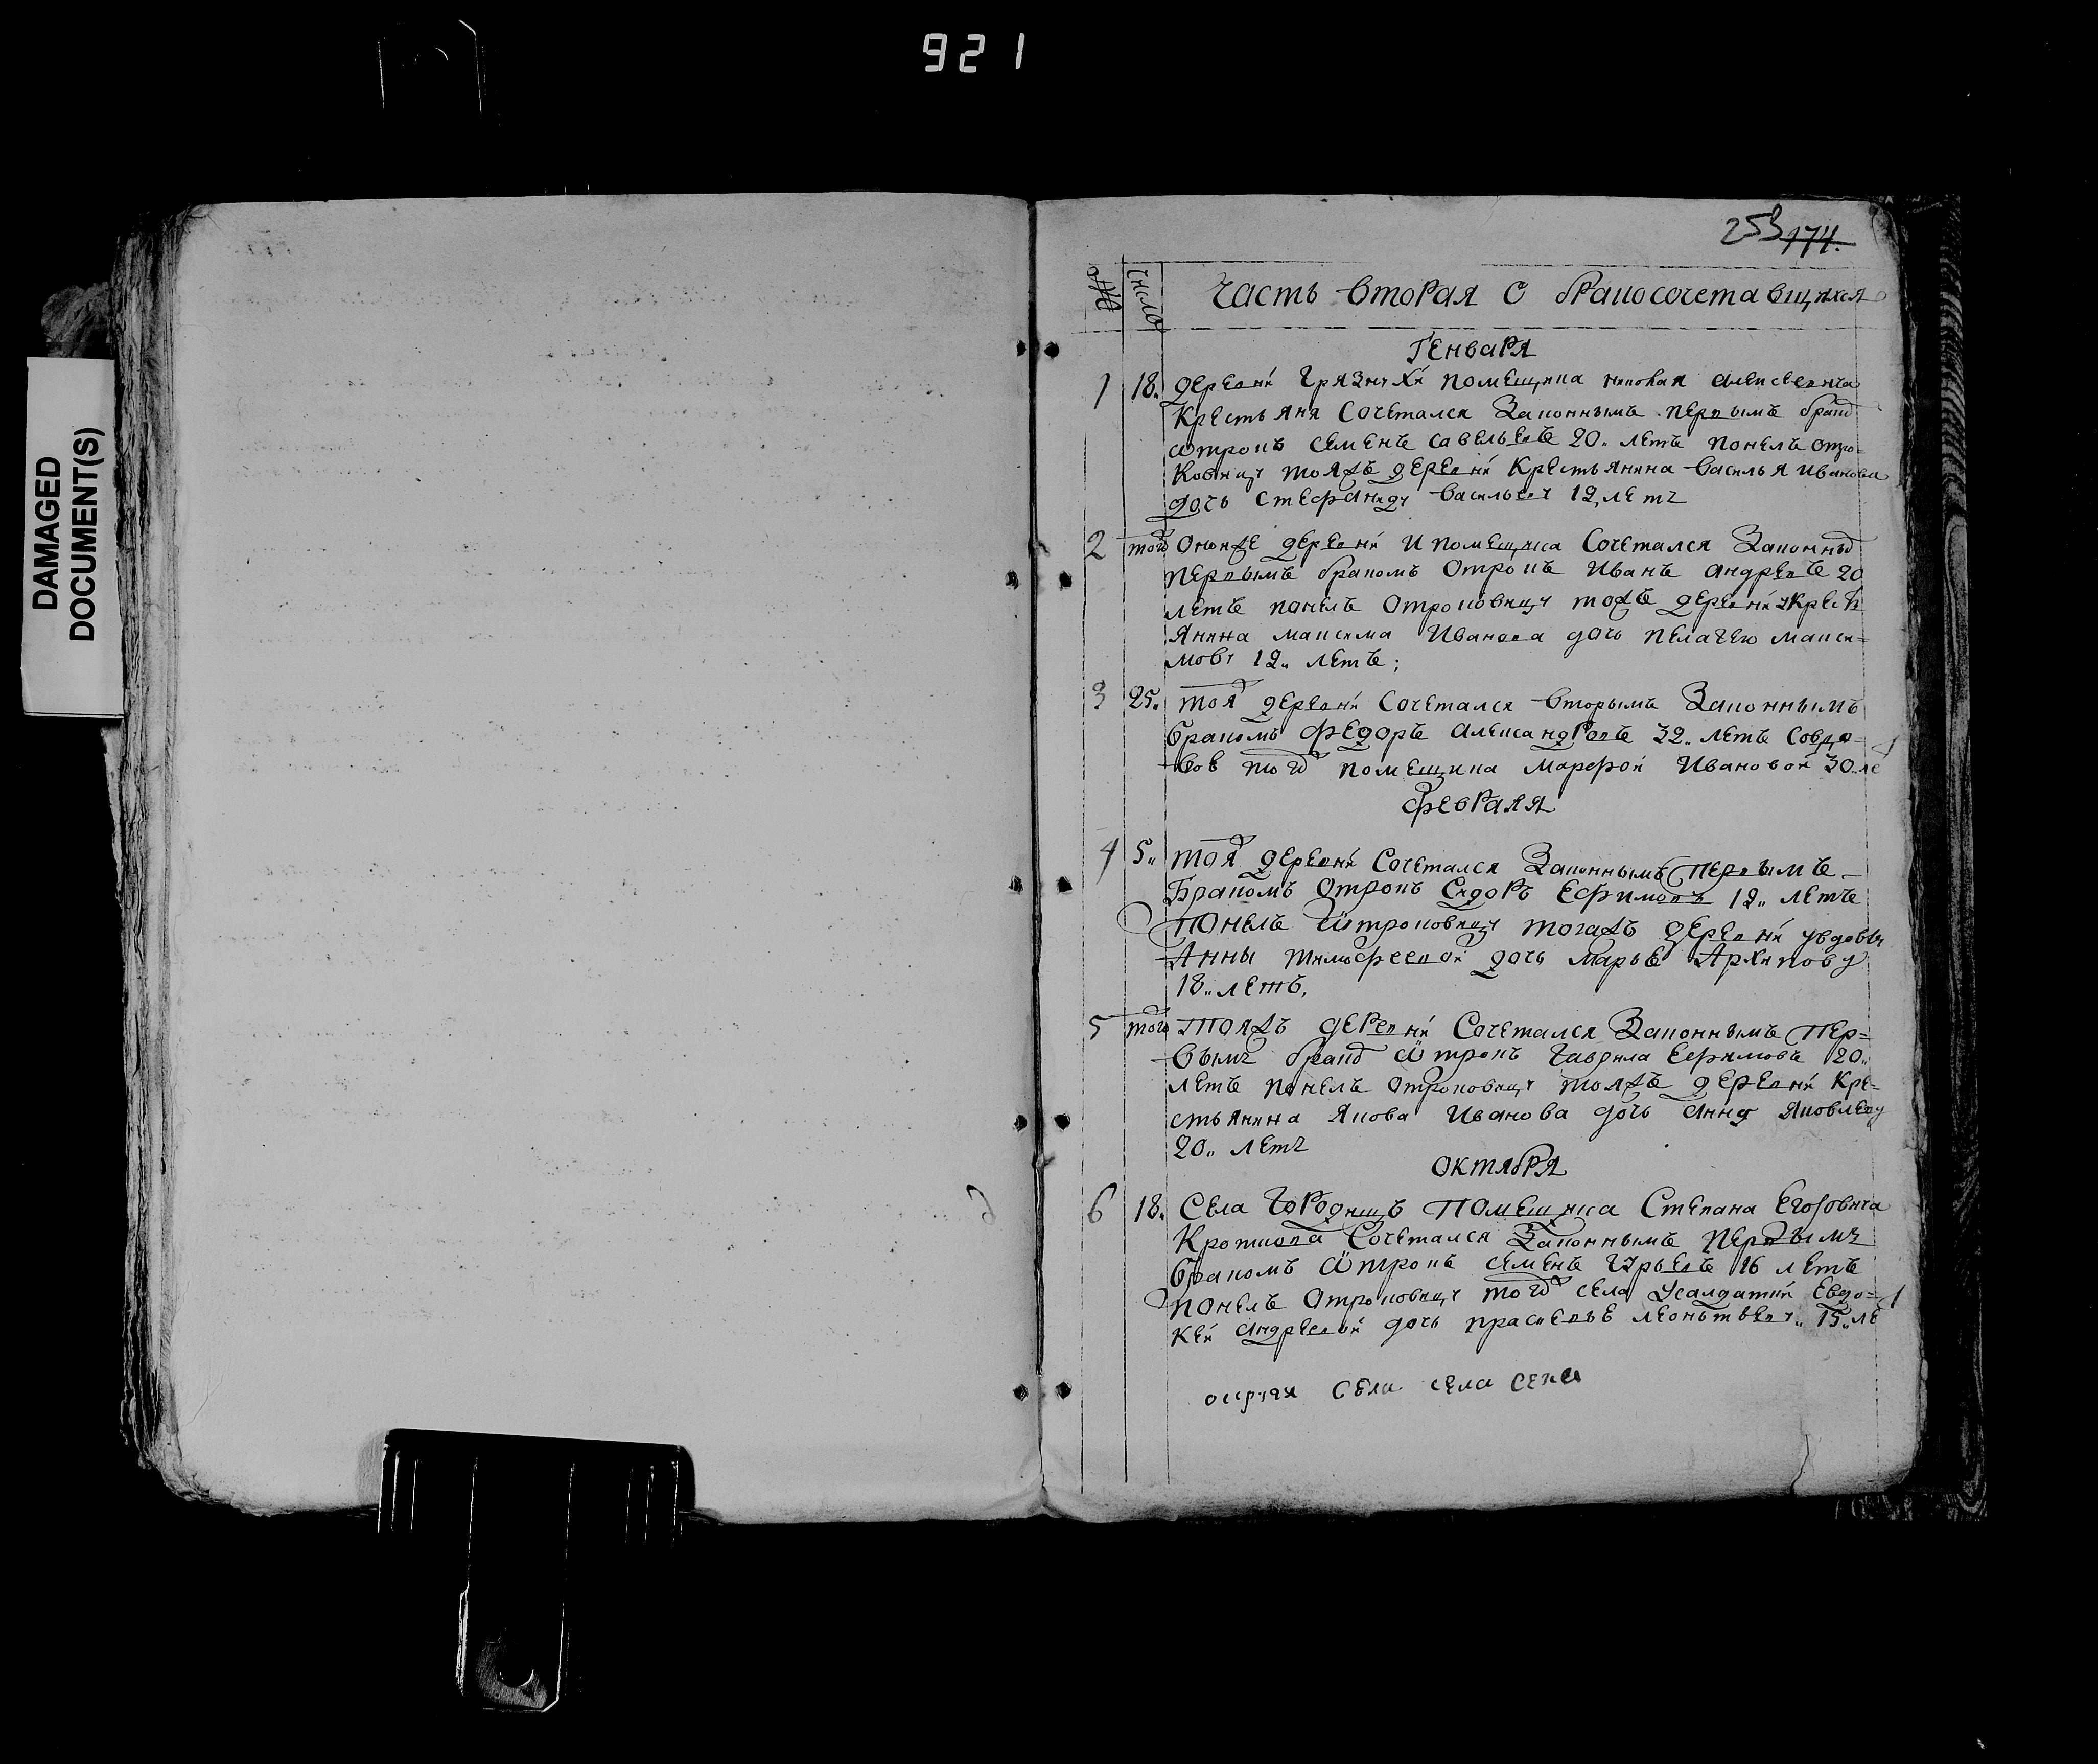 921
DAMAGED
DOCUMENT(S)
253 174.
число
Часть вторая О бракосочетавшихся
Генваря
1 18. деревни Грязнухи помещика Алексеевича
Крестьяня Сочетался Законнымъ первымъ брако
отрокъ Семенъ Савельевъ 20. летъ понелъ отро-
ковицу тояжъ деревни Крестьянина Василья Иванова
дочь Стефаниду Васильеву 19, летъ
2 того Оныяже деревни и помещика Сочетался Законны
первымъ бракомъ Отрокъ Иванъ Андреевъ 20
летъ понелъ Отроковицу тояжъ деревни у Кресть
янина Максима Иванова дочь Пелагею Макси-
мову 19. летъ;
3 25. тоя деревни Сочетался Вторымъ Законнымъ
бракомъ Федоръ Александровъ 32. летъ Совдо-
вов того помещика Марфой Ивановой 30. ле
Февраля
4 5. тоя деревни Сочетался Законнымъ Первымъ
Бракомъ Отрокъ Сидоръ Ефимовъ 19. летъ
Понелъ Отроковицу тогажъ деревни у вдовы
Анны Тимофеевой дочь Марье Архипову
18. летъ,
5 того тояжъ деревни Сочетался Законнымъ Пер-
вымъ брако Отрокъ Гаврила Ефимовъ 20.
летъ понелъ Отроковицу тояжъ деревни Кре-
стьянина Якова Иванова дочь Анну Яковлеву
20. летъ
Октября
6 18. Села Городищъ Помещика Степана Егоровича
Кроткова Сочетался Законнымъ Первымъ
бракомъ Отрокъ Семенъ Гурьевъ 16 летъ
понелъ Отроковицу того села Усалдатки Евдо-
кеи Андреевой дочь Прасковье Леонтьеву. 15. ле
села села села